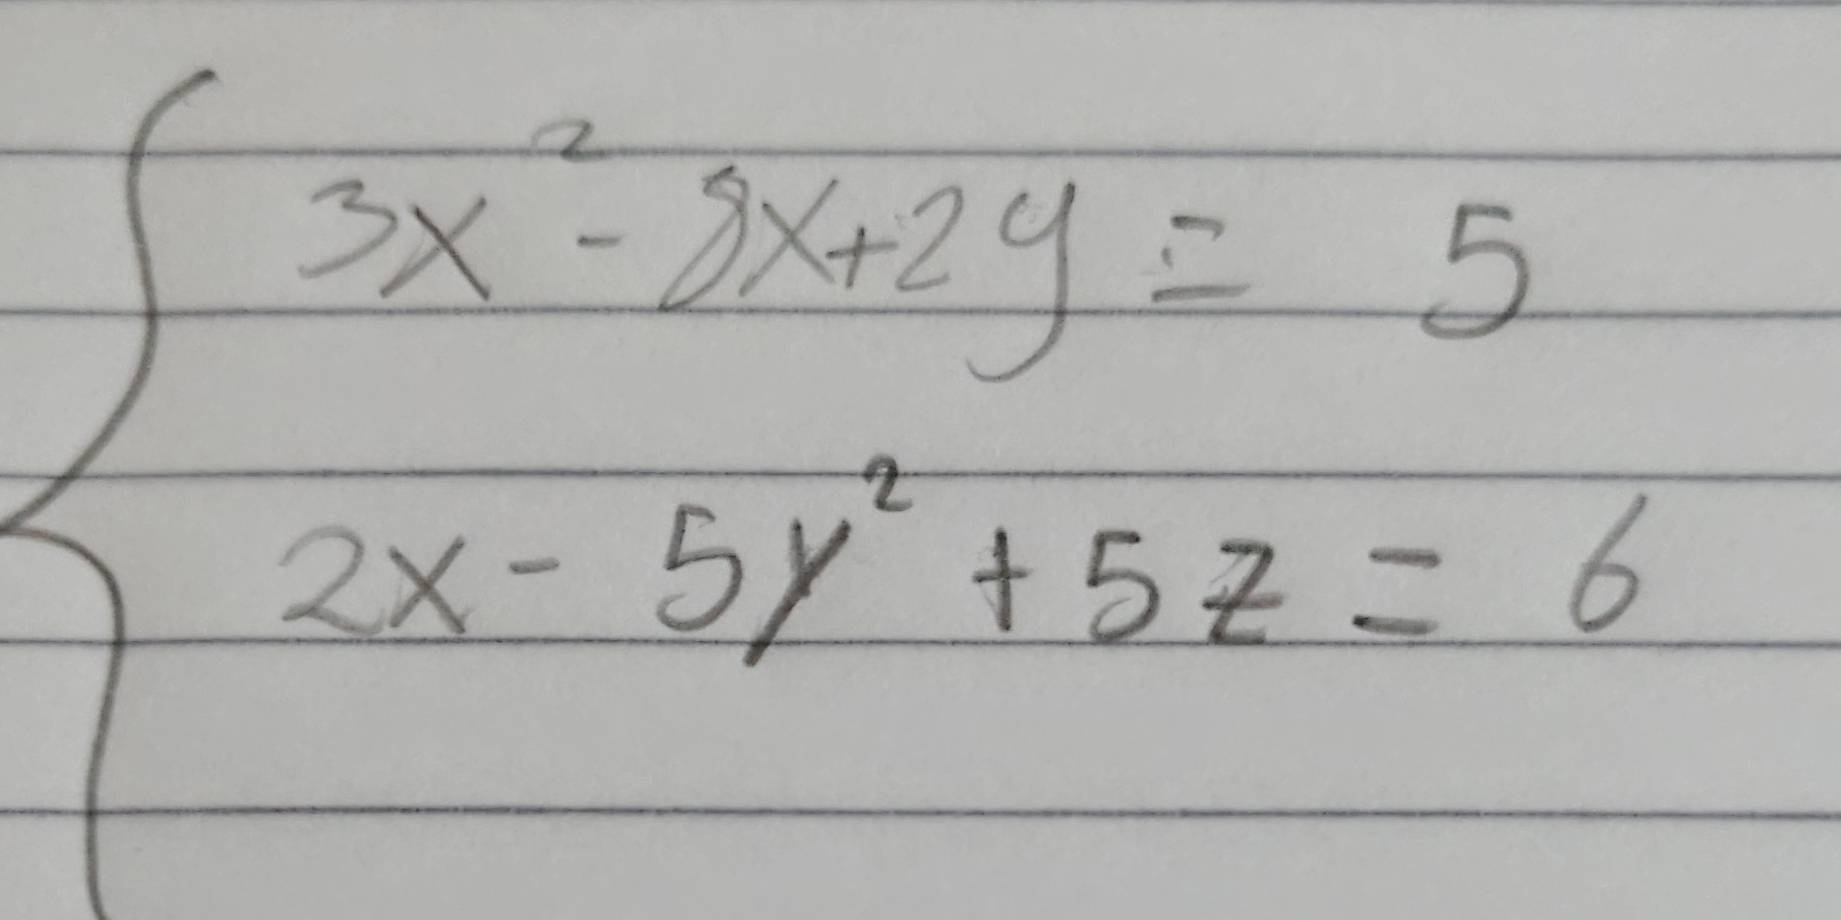 3x² - 8x+2y = 5
2x - 5y² + 5z = 6